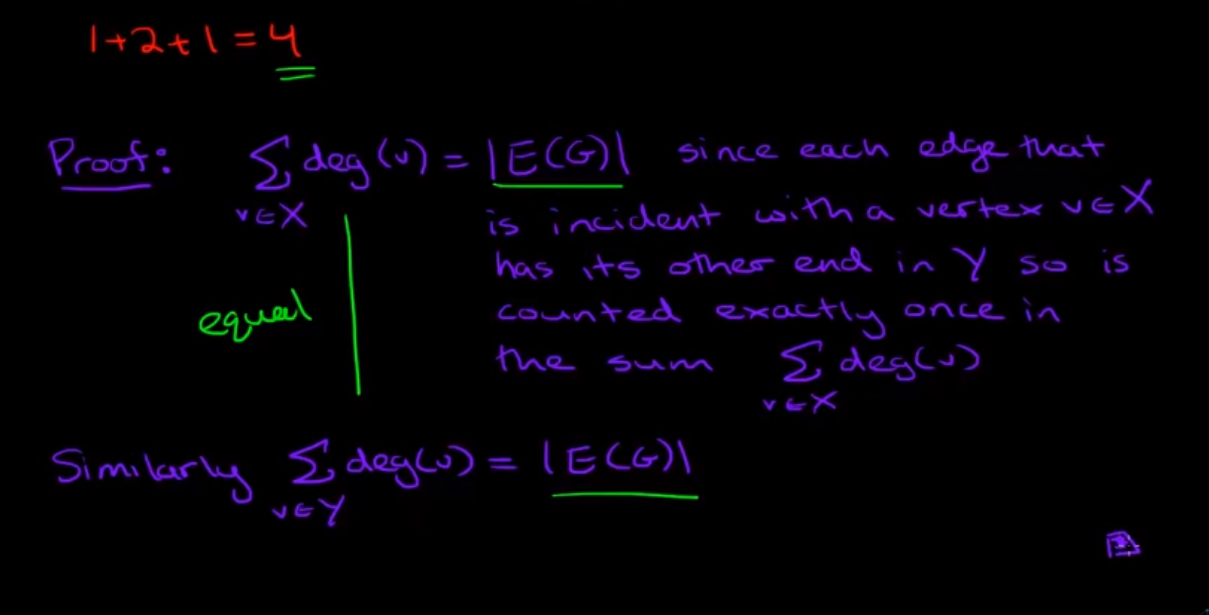 1+2+1=4
Proof: ∑ deg(v) = |E(G)| since each edge that
v∈X
is incident with a vertex v∈X
has its other end in Y so is
equal
counted exactly once in
the sum ∑ deg(v)
v∈X
Similarly ∑ deg(v) = |E(G)|
v∈Y